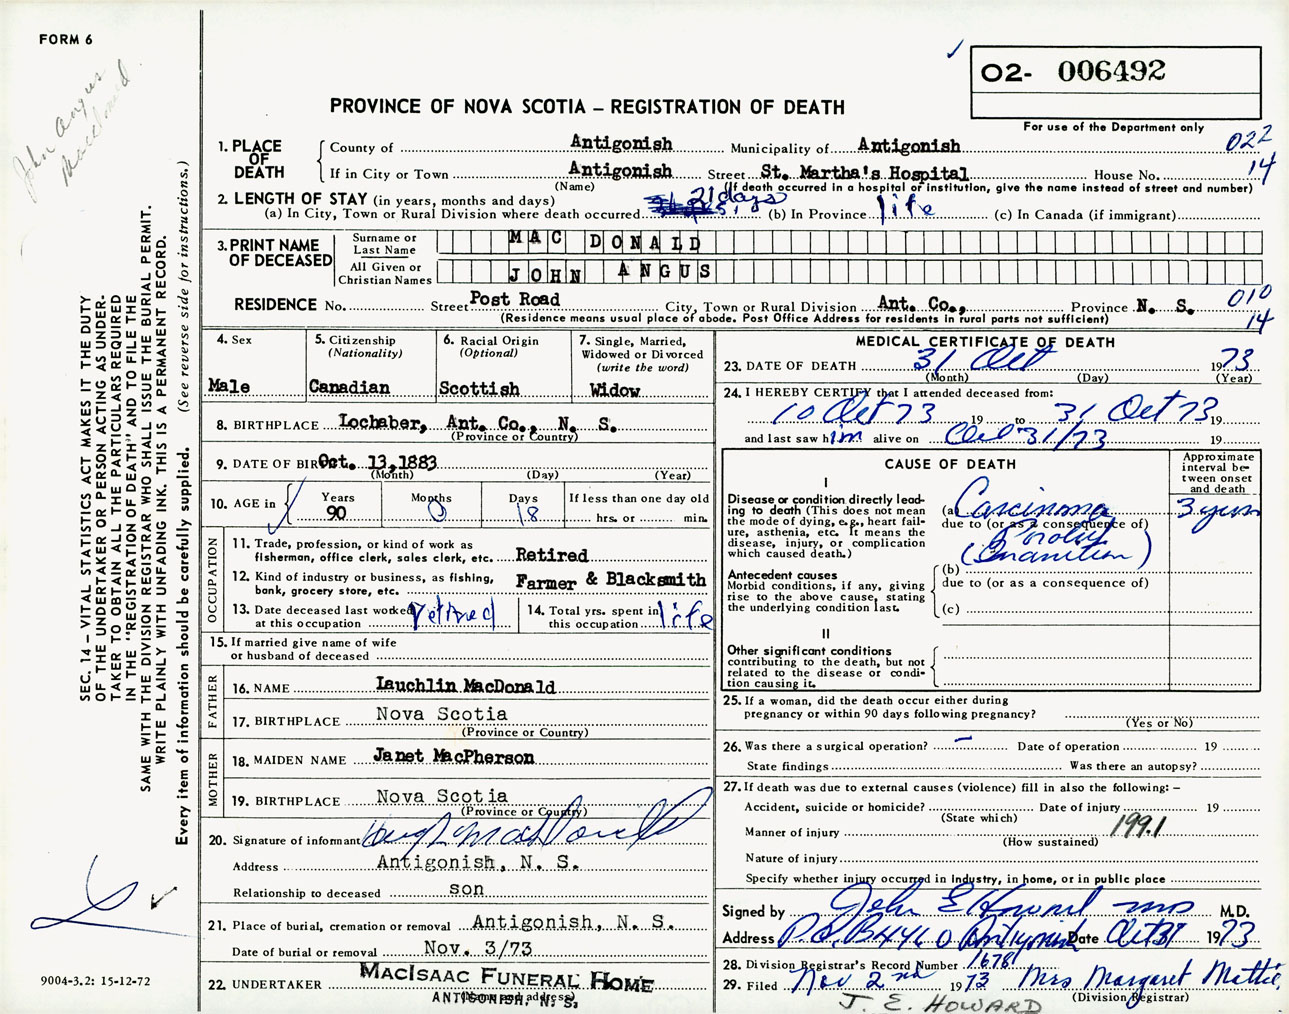 FORM 6
John Angus
Macdonald
02- 006492
PROVINCE OF NOVA SCOTIA – REGISTRATION OF DEATH
For use of the Department only
1. PLACE OF DEATH
County of Antigonish Municipality of Antigonish 022
If in City or Town Antigonish Street St. Martha's Hospital House No. 14
(Name) (If death occurred in a hospital or institution, give the name instead of street and number)
2. LENGTH OF STAY (in years, months and days)
(a) In City, Town or Rural Division where death occurred 21 days (b) In Province life (c) In Canada (if immigrant)
3. PRINT NAME OF DECEASED
Surname or Last Name MAC DONALD
All Given or Christian Names JOHN ANGUS
RESIDENCE No. Street Post Road City, Town or Rural Division Ant. Co., Province N. S. 010
(Residence means usual place of abode. Post Office Address for residents in rural parts not sufficient) 14
4. Sex Male
5. Citizenship (Nationality) Canadian
6. Racial Origin (Optional) Scottish
7. Single, Married, Widowed or Divorced (write the word) Widow
8. BIRTHPLACE Lochaber, Ant. Co., N. S.
(Province or Country)
9. DATE OF BIRTH Oct. 13,1883
(Month) (Day) (Year)
10. AGE in Years 90 Months 0 Days 18 If less than one day old hrs. or min.
OCCUPATION
11. Trade, profession, or kind of work as fisherman, office clerk, sales clerk, etc. Retired
12. Kind of industry or business, as fishing, bank, grocery store, etc. Farmer & Blacksmith
13. Date deceased last worked at this occupation retired
14. Total yrs. spent in this occupation life
15. If married give name of wife or husband of deceased
FATHER
16. NAME Lauchlin MacDonald
17. BIRTHPLACE Nova Scotia
(Province or Country)
MOTHER
18. MAIDEN NAME Janet MacPherson
19. BIRTHPLACE Nova Scotia
(Province or Country)
20. Signature of informant Hugh MacDonald
Address Antigonish, N. S.
Relationship to deceased son
21. Place of burial, cremation or removal Antigonish, N. S.
Date of burial or removal Nov. 3/73
22. UNDERTAKER MACISAAC FUNERAL HOME
(Name and address)
ANTIGONISH, N. S.
MEDICAL CERTIFICATE OF DEATH
23. DATE OF DEATH 31 Oct 1973
(Month) (Day) (Year)
24. I HEREBY CERTIFY that I attended deceased from:
10 Oct 73 19 to 31 Oct 73 19
and last saw him alive on Oct 31/73 19
CAUSE OF DEATH
Approximate interval between onset and death
I
Disease or condition directly leading to death (This does not mean the mode of dying, e.g., heart failure, asthenia, etc. It means the disease, injury, or complication which caused death.)
(a) Carcinoma 3 years
due to (or as a consequence of)
(Inanition)
Antecedent causes
Morbid conditions, if any, giving rise to the above cause, stating the underlying condition last.
(b)
due to (or as a consequence of)
(c)
II
Other significant conditions
contributing to the death, but not related to the disease or condition causing it.
25. If a woman, did the death occur either during pregnancy or within 90 days following pregnancy?
(Yes or No)
26. Was there a surgical operation? – Date of operation 19
State findings Was there an autopsy?
27. If death was due to external causes (violence) fill in also the following: –
Accident, suicide or homicide? Date of injury 19
(State which)
Manner of injury 199.1
(How sustained)
Nature of injury
Specify whether injury occurred in industry, in home, or in public place
Signed by John E Howard M.D.
Address P.O. B 4460 Antigonish Date Oct 31 1973
28. Division Registrar's Record Number 1678
29. Filed Nov 2nd 1973 Mrs Margaret Mattie
(Division Registrar)
J. E. HOWARD
SEC. 14 – VITAL STATISTICS ACT MAKES IT THE DUTY
OF THE UNDERTAKER OR PERSON ACTING AS UNDER-
TAKER TO OBTAIN ALL THE PARTICULARS REQUIRED
IN THE "REGISTRATION OF DEATH" AND TO FILE THE
SAME WITH THE DIVISION REGISTRAR WHO SHALL ISSUE THE BURIAL PERMIT.
WRITE PLAINLY WITH UNFADING INK. THIS IS A PERMANENT RECORD.
Every item of information should be carefully supplied. (See reverse side for instructions.)
9004-3.2: 15-12-72